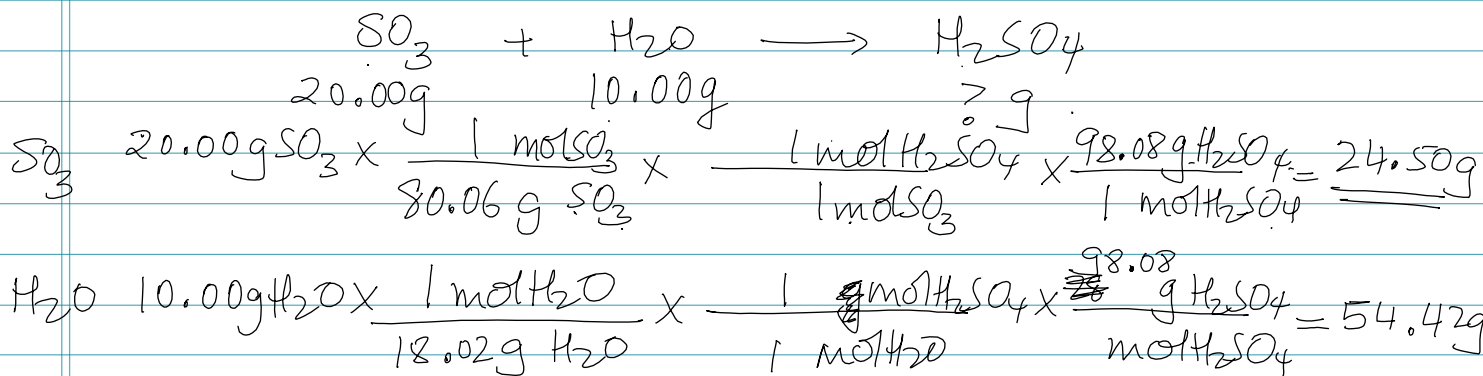 SO₃ + H₂O ⟶ H₂SO₄
20.00g 10.00g ? g
SO₃ 20.00gSO₃ × 1 molSO₃ / 80.06 g SO₃ × 1 mol H₂SO₄ / 1molSO₃ × 98.08g H₂SO₄ / 1 molH₂SO₄ = 24.50g
H₂O 10.00gH₂O × 1 mol H₂O / 18.02g H₂O × 1 molH₂SO₄ / 1 molH₂O × 98.08 g H₂SO₄ / molH₂SO₄ = 54.42g